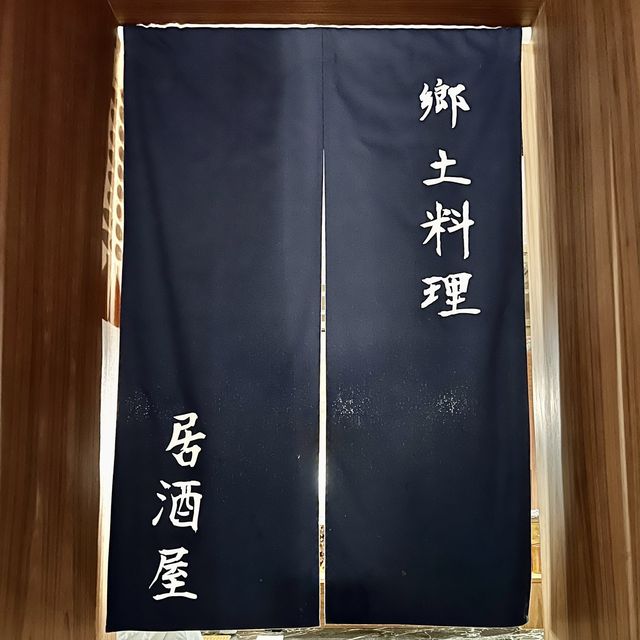 郷土料理
居酒屋